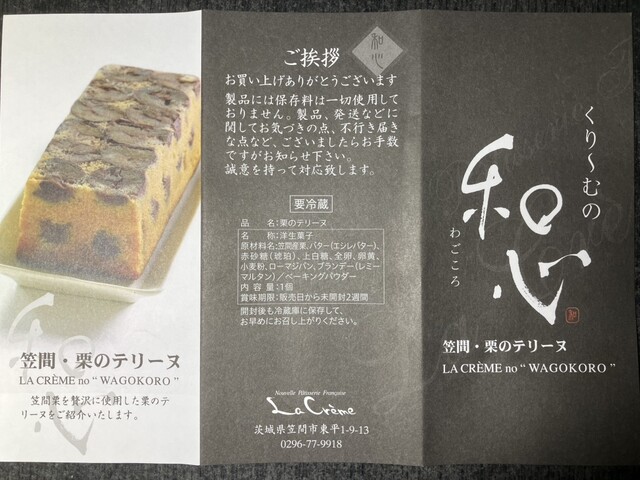 笠間・栗のテリーヌ
LA CRÈME no “ WAGOKORO ”
笠間栗を贅沢に使用した栗のテ
リーヌをご紹介いたします。
和心
ご挨拶
お買い上げありがとうございます
製品には保存料は一切使用して
おりません。製品、発送などに
関してお気づきの点、不行き届き
な点など、ございましたらお手数
ですがお知らせ下さい。
誠意を持って対応致します。
要冷蔵
品　名：栗のテリーヌ
名　称：洋生菓子
原材料名：笠間産栗、バター（エシレバター）、
赤砂糖（琥珀）、上白糖、全卵、卵黄、
小麦粉、ローマジパン、ブランデー（レミー
マルタン）／ベーキングパウダー
内 容 量：1個
賞味期限：販売日から未開封2週間
開封後も冷蔵庫に保存して、
お早めにお召し上がりください。
Nouvelle Pâtisserie Française
La Crème
茨城県笠間市東平1-9-13
0296-77-9918
くり〜むの
和心
わごころ
笠間・栗のテリーヌ
LA CRÈME no “ WAGOKORO ”